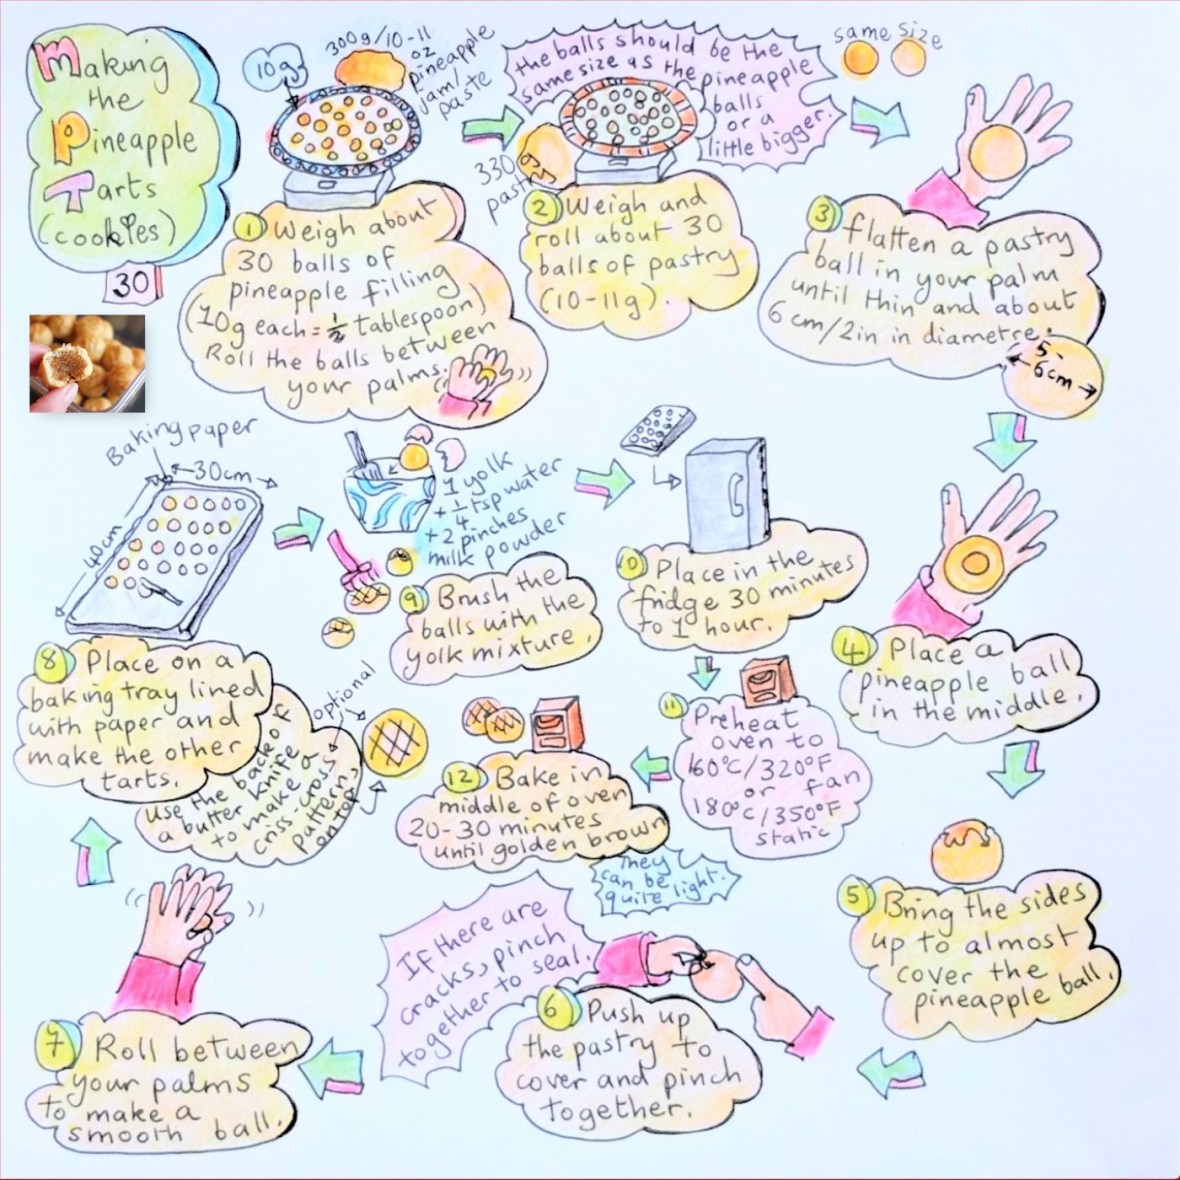 Making
the
Pineapple
Tarts
(cookies)
30
10g
300g/10-11
oz
pineapple
jam/te
paste
1 Weigh about
30 balls of
pineapple filling
(10g each = 1/2 tablespoon)
Roll the balls between
your palms.
the balls should be the
same size as the pineapple
balls
or a
little bigger.
same size
330g
pastry
2 Weigh and
roll about 30
balls of pastry
(10-11g).
3 flatten a pastry
ball in your palm
until thin and about
6 cm/2in in diametre.
5-
6cm
4 Place a
pineapple ball
in the middle.
5 Bring the sides
up to almost
cover the
pineapple ball.
6 Push up
the pastry to
cover and pinch
together.
If there are
cracks, pinch
together to seal.
7 Roll between
your palms
to make a
smooth ball.
Baking paper
30cm
40cm
8 Place on a
baking tray lined
with paper and
make the other
tarts.
use the back of
a butter knife
to make a
criss-cross
pattern,
on top,
optional
1 yolk
+ 1/4 tsp water
+ 2 pinches
milk powder
9 Brush the
balls with the
yolk mixture.
10 Place in the
fridge 30 minutes
to 1 hour.
11 Preheat
oven to
160°C/320°F
or fan
180°C/350°F
static
12 Bake in
middle of oven
20-30 minutes
until golden brown
They
can be
quite light.